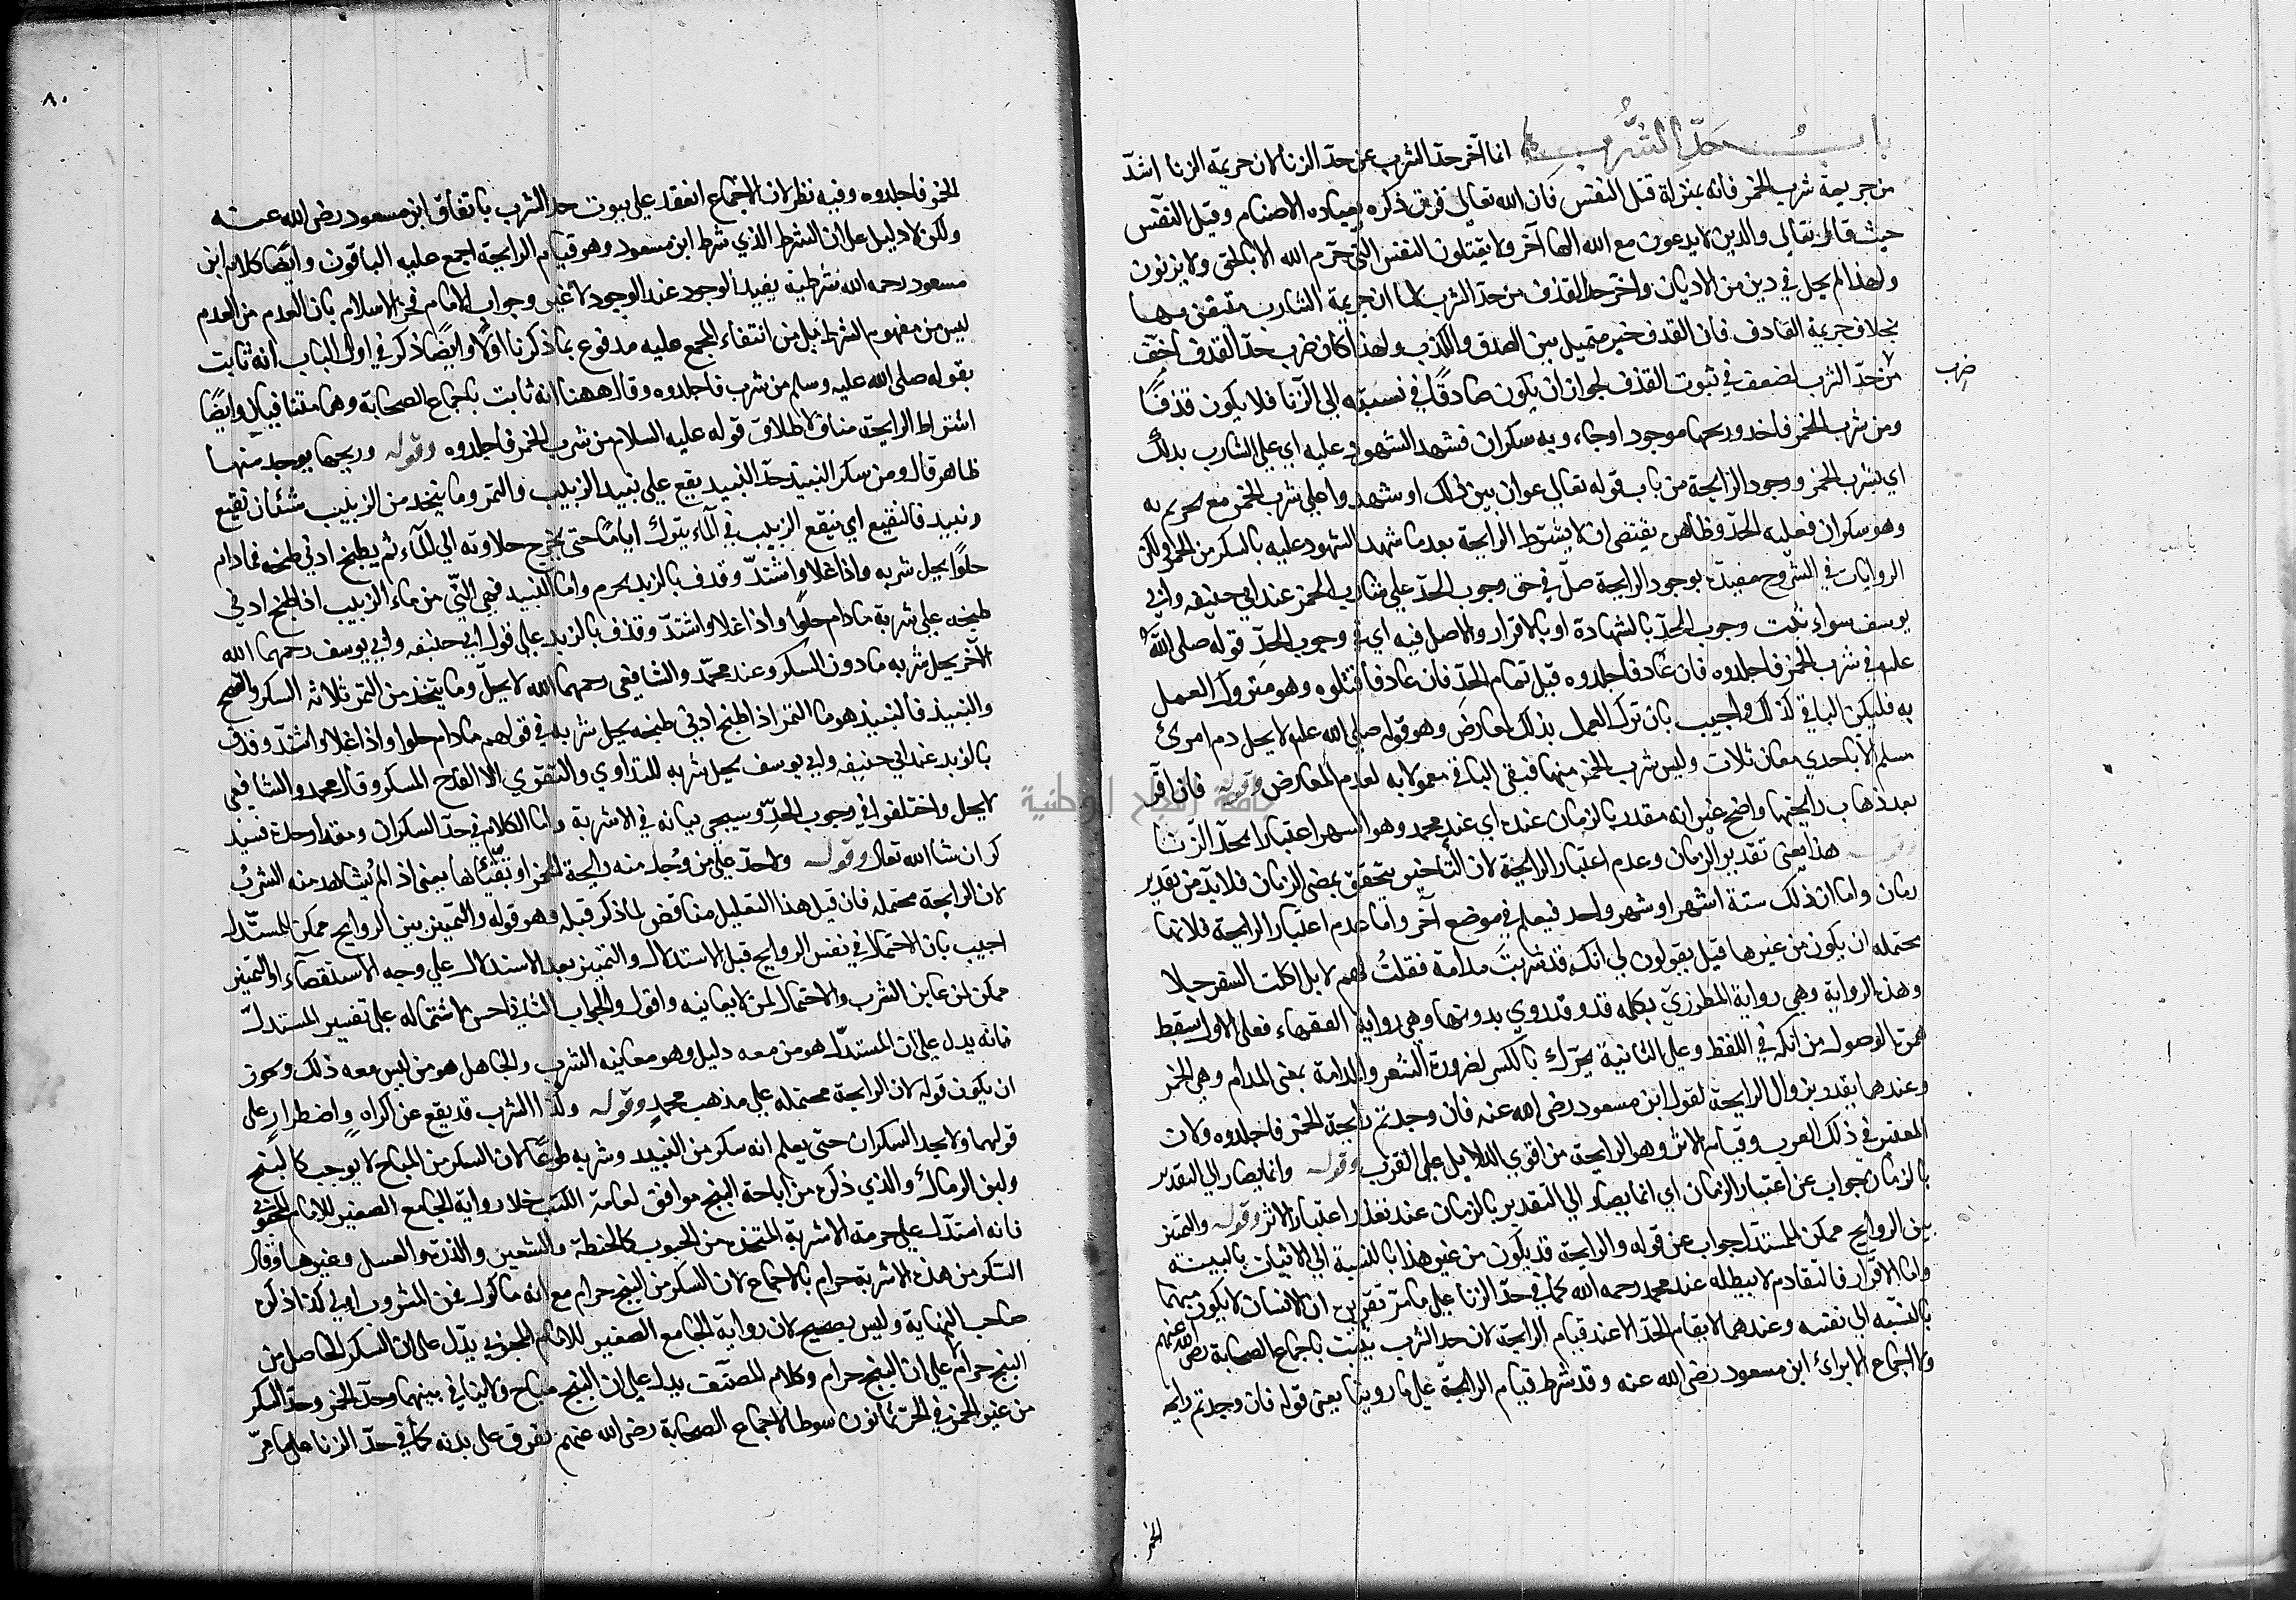 باب حد الشرب انما آخر حد الشرب عن حد الزنا لان جريمة الزنا اشد
من جريمة شرب الخمر فانه بمنزلة قتل النفس فان الله تعالى قرن ذكره بعبادة الاصنام وقيل النفس
حيث قال تعالى والذين لا يدعون مع الله الها آخر ولا يقتلون النفس التي حرم الله الا بالحق ولا يزنون
ولهذا لم يحل في دين من الاديان واخر حد القذف من حد الشرب لما ان جريمة الشارب متيقن بها
بخلاف جريمة القاذف فان القذف خبر متميل بين الصدق والكذب ولهذا كان ضرب حد القذف اخف
من حد الشرب لضعف في ثبوت القذف لجواز ان يكون صادقا في نسبته الى الزنا فلا يكون قذفا
ضرب
ومن شرب الخمر فاخذ وريحها موجود او جاء وبه سكران فشهد الشهود عليه اي على الشارب بذلك
اي بشرب الخمر ووجود الرايحة من باب قوله تعالى عوان بين ذلك او شهدوا على شرب الخمر مع بحريم به
وهو سكران فعليه الحد وظاهره يقتضي ان لا يشترط الرايحة بعدما شهد الشهود عليه بالسكر من الخمر ولكن
الروايات في الشروح مقيدة بوجود الرايحة في حق وجوب الحد على شارب الخمر عند ابي حنيفه وابي
يوسف سواء ثبت وجوب الحد بالشهادة او بالاقرار والاصل فيه اي في وجوب الحد قوله صلى الله
عليه في شرب الخمر فاجلدوه فان عاد فاجلدوه قبل تمام الحد فان عاد فاقتلوه وهو متروك العمل
به فليكن الباقي كذلك واجيب بان ترك العمل بذلك لمعارض وهو قوله صلى الله عليه لا يحل دم امرئ
مسلم الا باحدي معان ثلاث وليس شرب الخمر منها فبقي الباقي معمولا به لعدم المعارض وقوله فان اقر
بعد ذهاب رايحتها واضح غير انه مقدر بالزمان عنده اي عند محمد وهو الشهر اعتبارا بحد الزنا
هذا يعني تقدير الزمان وعدم اعتبار الرايحة لان التاخير يتحقق بمضي الزمان فلا بد من تقدير
زمان واما ان ذلك ستة اشهر او شهر واحد فيعلم في موضع آخر واما عدم اعتبار الرايحة فلانها
محتمله ان يكون من غيرها قيل يقولون لي انكه قد شربت مدامة فقلت لهم لا بل اكلت السفرجلا
وهذه الرواية وهي رواية المطرزي بكلمه قد وقد روي بدونها وهي رواية الفقهاء فعلى الاول سقط
همزة الوصول من انكه في اللفظ وعلى الثانية يحرك بالكسر لضرورة الشعر والمدامة بمعنى المدام وهي الخمر
وعندهما يقدر بزوال الرايحة لقول ابن مسعود رضى الله عنه فان وجدتم رايحة الخمر فاجلدوه ولان
المعتبر في ذلك القرب وقيام الاثر وهو الرايحة من اقوي الدلايل على القرب وقوله وانما يصار الي التقدير
بالزمان جواب عن اعتبار الزمان اي انما يصار الي التقدير بالزمان عند تعذر اعتبار الاثر وقوله والتمييز
بين الروايح ممكن للمستدل جواب عن قوله والرايحة قد يكون من غير هذا بالنسبة الي الاثبات بالبينة
واما الاقرار فالتقادم لا يبطله عند محمد رحمه الله كما في حد الزنا على ما مر تقريره ان الانسان لا يكون متهما
بالنسبه الي نفسه وعندهما لا يقام الحد الا عند قيام الرايحة لان حد الشرب يثبت باجماع الصحابة رضى الله عنهم
ولا اجماع الا برائ ابن مسعود رضى الله عنه وقد شرط قيام الرايحة على ما روينا يعني قوله فان وجدتم رايحة
الخمر
٨٠
الخمر فاجلدوه وفيه نظر لان الاجماع انعقد على ثبوت حد الشرب باتفاق ابن مسعود رضى الله عنه
ولكن لا دليل على ان الشرط الذي شرط ابن مسعود وهو قيام الرايحة اجمع عليه الباقون وايضا كلام ابن
مسعود رحمه الله شرطية يفيد الوجود عند الوجود لا غير وجواب الامام فخر الاسلام بان العدم من العدم
ليس من مفهوم الشرط بل من انتفاء المجمع عليه مدفوع بما ذكرنا اولا وايضا ذكر في اول الباب انه ثابت
بقوله صلى الله عليه وسلم من شرب فاجلدوه وقال ههنا انه ثابت باجماع الصحابة وهما متنافيان وايضا
اشتراط الرايحة مناف لاطلاق قوله عليه السلام من شرب الخمر فاجلدوه وقوله وريحها يوجد منها
ظاهر قال ومن سكر النبيذ حد النبيذ يقع على نبيذ الزبيب والتمر وما يتخذ من الزبيب شيئان نقيع
ونبيذ فالنقيع اي ينقع الزبيب في الماء يترك اياما حتى يخرج حلاوته الي الماء ثم يطبخ ادني طبخه فما دام
حلوا يحل شربه واذا غلا واشتد وقذف بالزبد يحرم واما النبيذ فهي الني من ماء الزبيب اذا طبخ ادني
طبخه على شربه مادام حلوا واذا غلا واشتد وقذف بالزبد على قول ابي حنيفه وابي يوسف رحمهما الله
الآخر يحل شربه مادون السكر وعند محمد والشافعي رحمهما الله لا يحل وما يتخذ من التمر ثلاثه السكر والفضيخ
والنبيذ فالنبيذ هو ما التمر اذا طبخ ادني طبخه يحل شربه في قولهم مادام حلوا واذا غلا واشتد وقذف
بالزبد عند ابي حنيفه وابي يوسف يحل شربه للتداوي والتقوي الا القدح المسكر وقال محمد والشافعي
لا يحل واختلفوا في وجوب الحد وسيجي بيانه في الاشربة واما الكلام في حد السكران ومقدار حده فسيذ
كر ان شا الله تعالى وقوله ولاحد على من وجد منه رايحة الخمر او تقياها يعني اذا لم يشاهد منه الشرب
لان الرايحة محتمله فان قيل هذا التعليل مناقض لما ذكر قبله وهو قوله والتمييز بين الروايح ممكن للمستدل
اجيب بان الاحتمال في نفس الروايح قبل الاستدلال والتمييز بعد الاستدلال على وجه الاستقصاء او التمييز
ممكن لمن عاين الشرب والاحتمال لمن لا يعاينه واقول والجواب الثاني احسن لاشتماله على تفسير المستدل
فانه يدل على ان المستدل هو من معه دليل وهو معاينة الشرب والجاهل هو من ليس معه ذلك ويجوز
ان يكون قوله لان الرايحة محتمله على مذهب محمد وقوله وكذا الشرب قد يقع عن اكراه واضطرار على
قولهما ولا يحد السكران حتى يعلم انه سكر من النبيذ وشربه طوعا لان السكر من المباح لا يوجب كالبنج
ولبن الرماك والذي ذكره من اباحة البنج موافق لعامة الكتب خلا رواية الجامع الصغير للامام المحبوبي
فانه استدل على حرمة الاشربة المتخذه من الحبوب كالحنطة والشعير والذرة والعسل وغيرها وقال
السكر من هذه الاشربة حرام بالاجماع لان السكر من البنج حرام مع انه ماكول فمن المشروب اولي كذا ذكره
صاحب النهاية وليس بصحيح لان رواية الجامع الصغير للامام المحبوبي يدل على ان السكر الحاصل من
البنج حرام لا على ان البنج حرام وكلام المصنف يدل على ان البنج مباح ولا تنافي بينهما وحد الخمر وحد السكر
من غير الخمر في الحر ثمانون سوطا لاجماع الصحابة رضى الله عنهم تفرق على بدنه كما في حد الزنا على ما مر
جامعة النجاح الوطنية